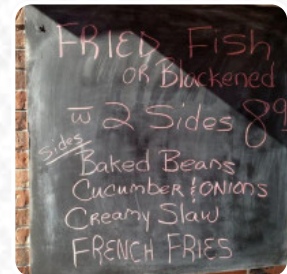 FRIED Fish
OR Blackened
w̅ 2 Sides 8
Sides
Baked Beans
Cucumber & ONIONS
Creamy Slaw
FRENCH FRIES